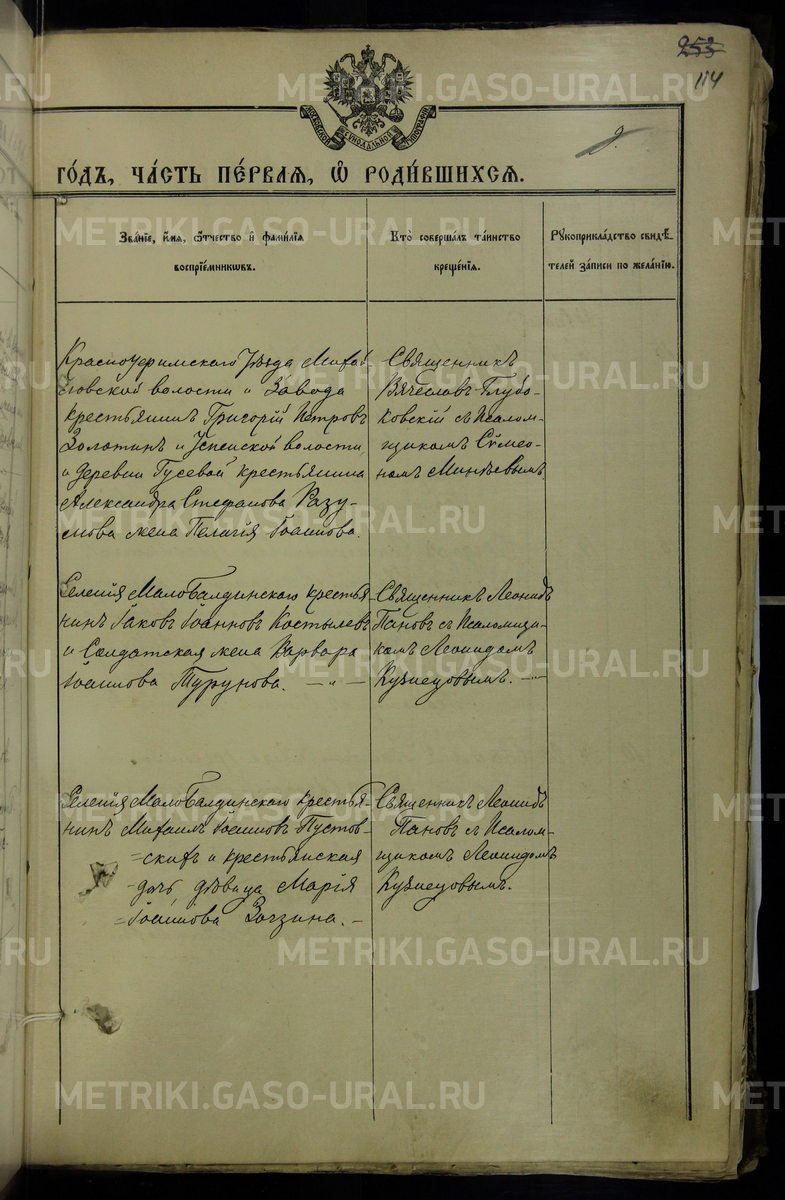 253
114
2.
МОСКОВСКОЙ СѴНОДАЛЬНОЙ ТИПОГРАФІИ
ГОДЪ, ЧАСТЬ ПЕРВАЯ, Ѡ РОДИВШИХСЯ.
Званіе, имя, ѿчество и фамилія
воспріемниковъ.
Кто совершалъ таинство
крещенія.
Рукоприкладство свидѣ-
телей записи по желанію.
Красноуфимскаго Уѣзда
волости и Завода
крестьянинъ Григорій Петровъ
Золотинъ и Успенской волости
и деревни Гусевой крестьянина
Александра Стефанова Разу-
мова жена Пелагія Іоаннова.
Священникъ
Вячеславъ Глубо-
ковскій съ Псалом-
щикомъ Сѵмео-
номъ
Селенія МалоБалдинскаго крестья-
нинъ Іаковъ Іоанновъ Костылевъ
и Солдатская жена Варвара
Іоаннова Турунова. — „ —
Священникъ Леонидъ
Пановъ съ Псаломщи-
комъ Леонидомъ
Кузнецовымъ. — „
Селенія МалоБалдинскаго крестья-
нинъ Михаилъ Іоанновъ Пустов-
=скихъ и крестьянская
дочь дѣвица Марія
=Іоаннова —
Священникъ Леонидъ
Пановъ съ Псалом-
щикомъ Леонидомъ
Кузнецовымъ.
METRIKI.GASO-URAL.RU